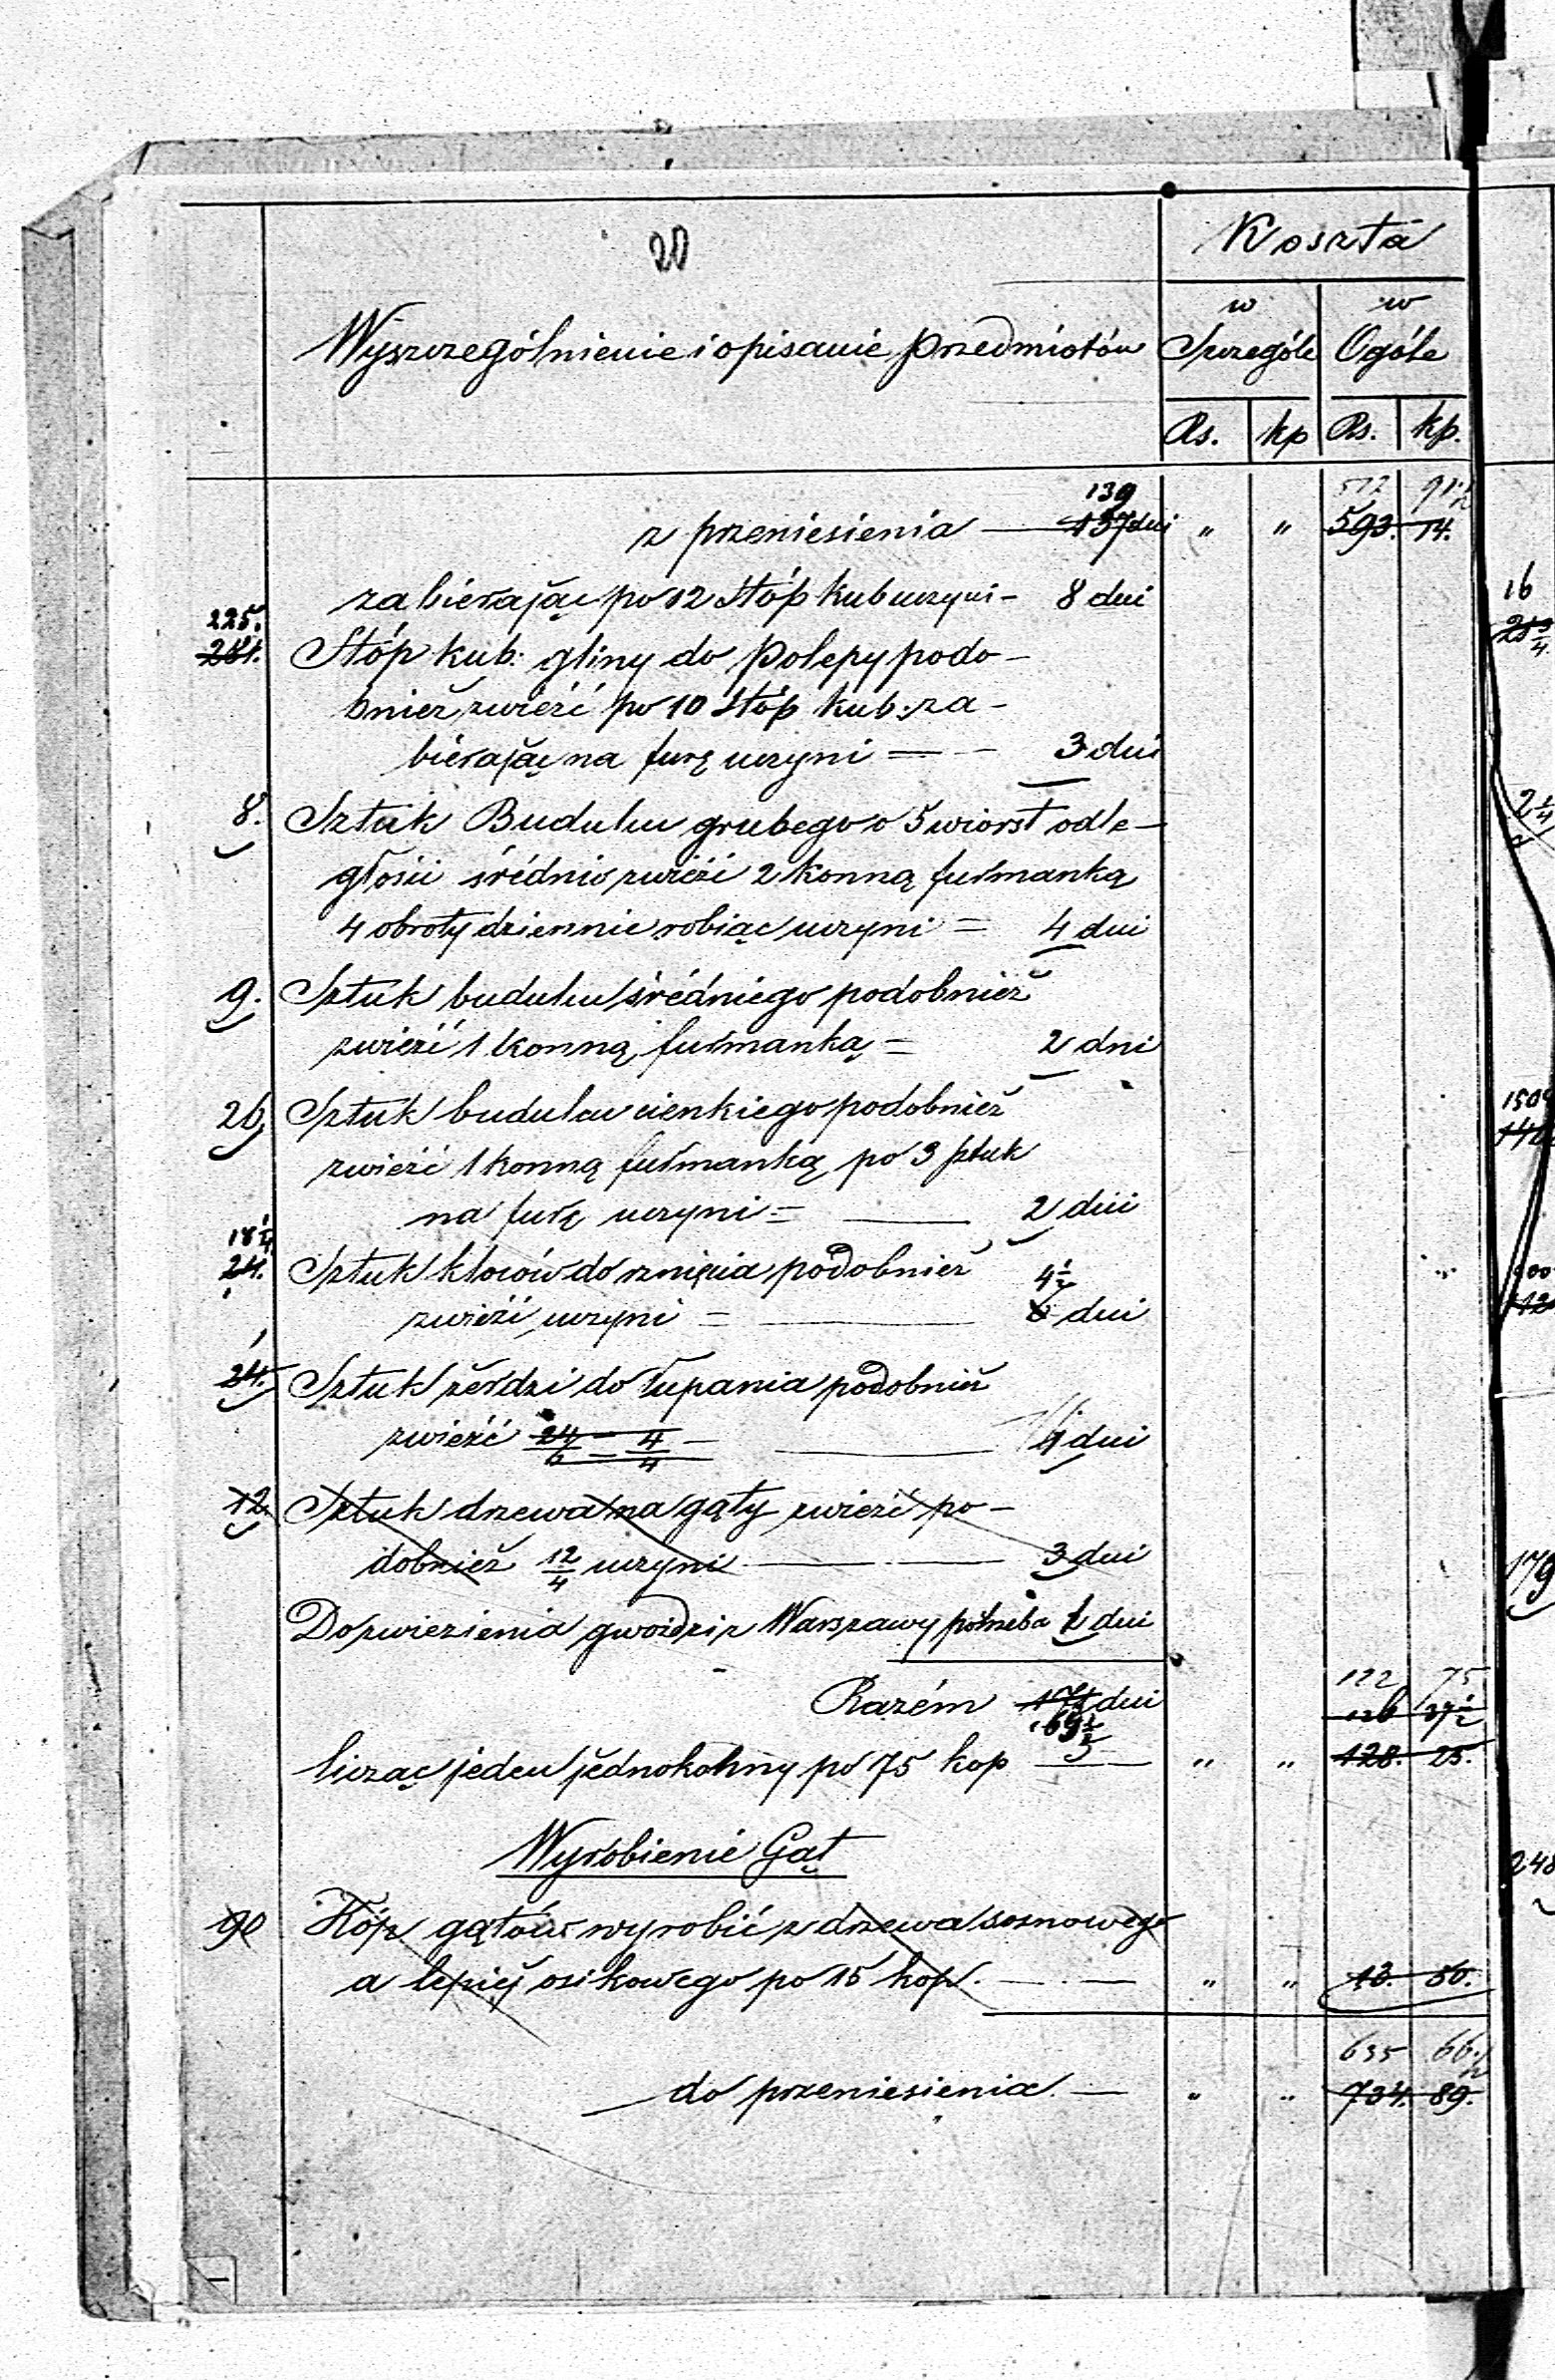 20
Koszta
w w
Wyszczególnienie i opisanie przedmiotów Szczególe Ogóle
Rs. kp Rs. kp.
139 512 91½
z przeniesienia — 137 dni " " 593. 14.
zabiérając po 12 stóp kub uczyni – 8 dni
225.
281. Stóp kub: gliny do polepy podo-
bnież zwieźć po 10 stóp kub: za-
biérając na furę uczyni = — 3 dni
8. Sztuk Budulcu grubego o 5 wiorst odle-
głości średnio zwieźć 2 konną furmanką
4 obroty dziennie robiąc uczyni = 4 dni
9. Sztuk budulcu średniego podobnież
zwieźć 1 konną furmanką = 2 dni
26 Sztuk budulcu cienkiego podobnież
zwieźć 1 konną furmanką po 3 sztuk
na furę uczyni = — 2 dni
18¼
24. Sztuk kloców do rznięcia podobnież 4½
zwieźć uczyni = — 6 dni
24. Sztuk żerdzi do łupania podobnież
zwieźć 24/6 – 4/4 — dni
12 Sztuk drzewa na gąty zwieźć po-
dobnież 12/4 uczyni — 3 dni
Do zwiezienia gwoździ z Warszawy potrzeba dni
122 75
Razém 171 dni 126 37½
169½
licząc jeden jednokonny po 75 kop — " " 128. 25.
Wyrobienie Gąt
90 Kóp gątów wyrobić z drzewa sosnowego
a lepiej osikowego po 15 kop. — " " 13. 50.
635 66½
do przeniesienia. — " " 734. 89.